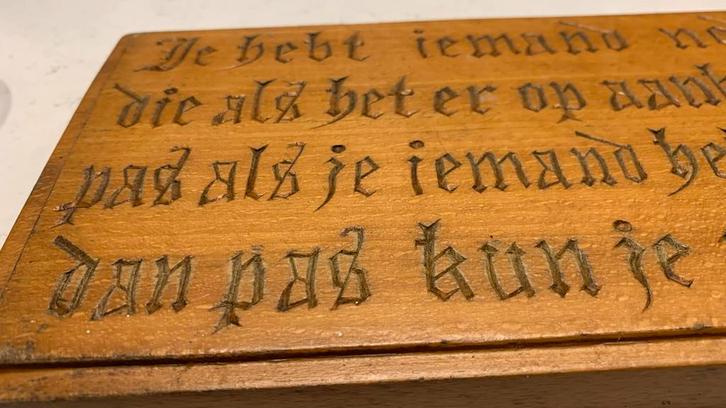 Je hebt iemand no
die als het er op aank
pas als je iemand he
dan pas kun je